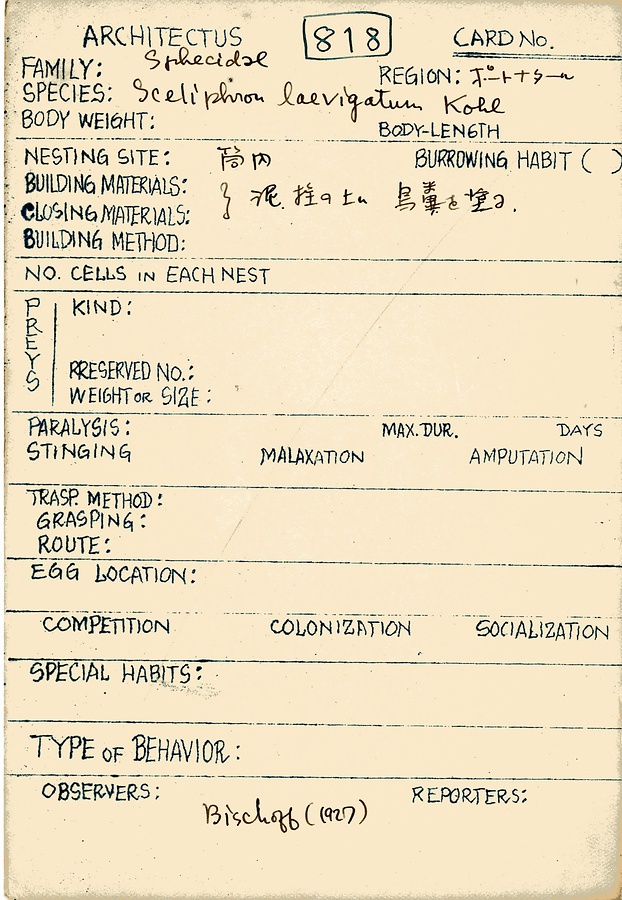 ARCHITECTUS 818 CARD No.
FAMILY: Sphecidae
REGION: ポートナタール
SPECIES: Sceliphron laevigatum Kohl
BODY WEIGHT: BODY-LENGTH
NESTING SITE: 筒内 BURROWING HABIT ( )
BUILDING MATERIALS:
CLOSING MATERIALS: } 泥. 栓の上に 鳥糞を塗る.
BUILDING METHOD:
NO. CELLS IN EACH NEST
PREYS
KIND:
RRESERVED NO.:
WEIGHT OR SIZE:
PARALYSIS: MAX. DUR. DAYS
STINGING MALAXATION AMPUTATION
TRASP. METHOD:
GRASPING:
ROUTE:
EGG LOCATION:
COMPETITION COLONIZATION SOCIALIZATION
SPECIAL HABITS:
TYPE OF BEHAVIOR:
OBSERVERS: REPORTERS:
Bischoff (1927)